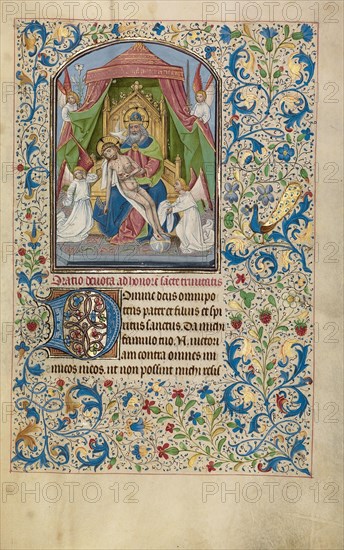 Oratio deuota ad honorē sacte trinitatis
Domine deus omnipo
tens pater et filius et spi
ritus sanctus. Da michi
famulo tuo. N. uictori
am contra omnes ini
micos meos. ut non possint michi resis
PHOTO12 PHOTO12 PHOTO12